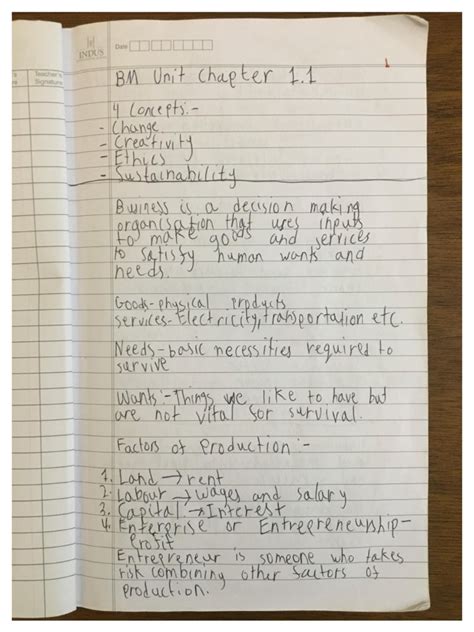 INDUS
Date
1
Teacher's
Signature
BM Unit Chapter 1.1
4 Concepts:-
- Change
- Creativity
- Ethics
- Sustainability
Business is a decision making
organisation that uses inputs
to make goods and services
to satisfy human wants and
needs.
Goods-physical products
services-Electricity, transportation etc.
Needs-basic necessities required to
survive
Wants:-Things we like to have but
are not vital for survival.
Factors of Production:-
1. Land → rent
2. Labour → wages and salary
3. Capital → Interest
4. Enterprise or Entrepreneurship-
Profit
Entrepreneur is someone who takes
risk combining other factors of
production.